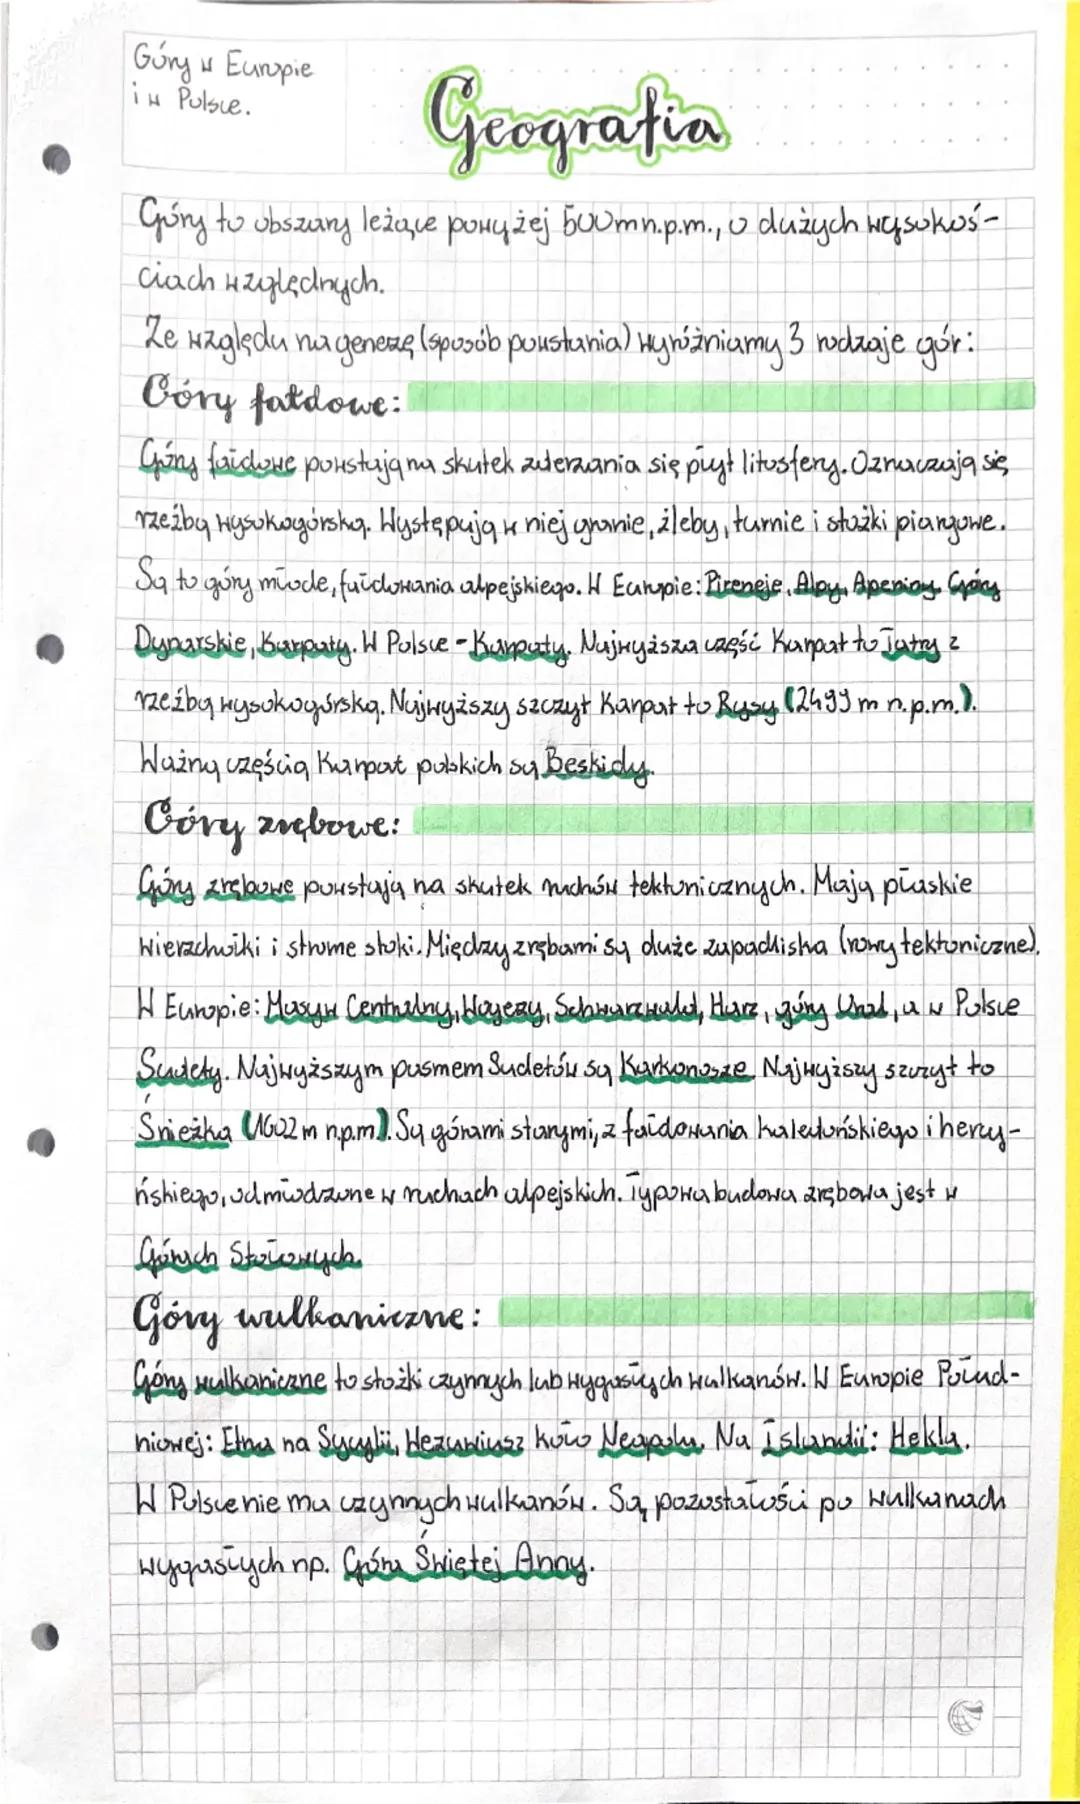 Góry w Europie
i w Polsce.
Geografia
Góry to obszary leżące powyżej 500m n.p.m., o dużych wysokoś-
ciach względnych.
Ze względu na genezę (sposób powstania) wyróżniamy 3 rodzaje gór:
Góry fałdowe:
Góry fałdowe powstają na skutek zderzania się płyt litosfery. Oznaczają się
rzeźbą wysokogórską. Występują w niej granie, żleby, turnie i stożki piargowe.
Są to góry młode, fałdowania alpejskiego. W Europie: Pireneje, Alpy, Apeniny, Góry
Dynarskie, Karpaty. W Polsce - Karpaty. Najwyższa część Karpat to Tatry z
rzeźbą wysokogórską. Najwyższy szczyt Karpat to Rysy (2499 m n.p.m.).
Ważną częścią Karpat polskich są Beskidy.
Góry zrębowe:
Góry zrębowe powstają na skutek ruchów tektonicznych. Mają płaskie
wierzchołki i strome stoki. Między zrębami są duże zapadliska (rowy tektoniczne).
W Europie: Masyw Centralny, Wogezy, Schwarzwald, Harz, góry Ural, a w Polsce
Sudety. Najwyższym pasmem Sudetów są Karkonosze. Najwyższy szczyt to
Śnieżka (1602 m n.p.m.). Są górami starymi, z fałdowania kaledońskiego i hercy-
ńskiego, odmłodzone w ruchach alpejskich. Typowa budowa zrębowa jest w
Górach Stołowych.
Góry wulkaniczne:
Góry wulkaniczne to stożki czynnych lub wygasłych wulkanów. W Europie Połud-
niowej: Etna na Sycylii, Wezuwiusz koło Neapolu. Na Islandii: Hekla.
W Polsce nie ma czynnych wulkanów. Są pozostałości po wulkanach
wygasłych np. Góra Świętej Anny.